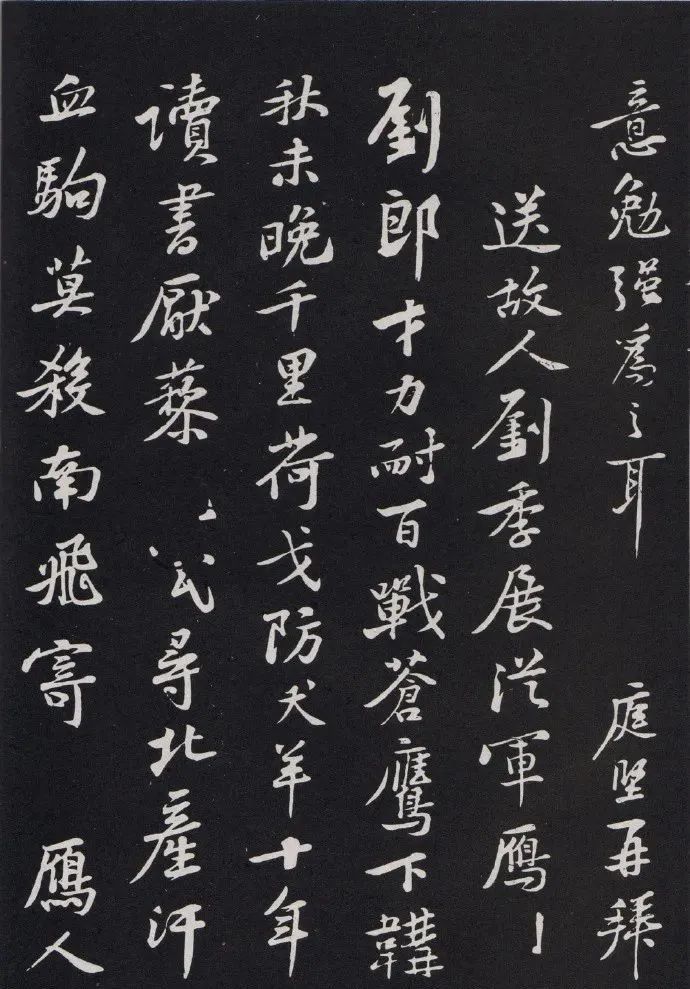 意勉强為之耳 庭堅再拜
送故人劉季展從軍鴈
劉郎才力耐百戰蒼鷹下韝
秋未晚千里荷戈防犬羊十年
讀書厭藜尋北產汗
血駒莫殺南飛寄鴈人